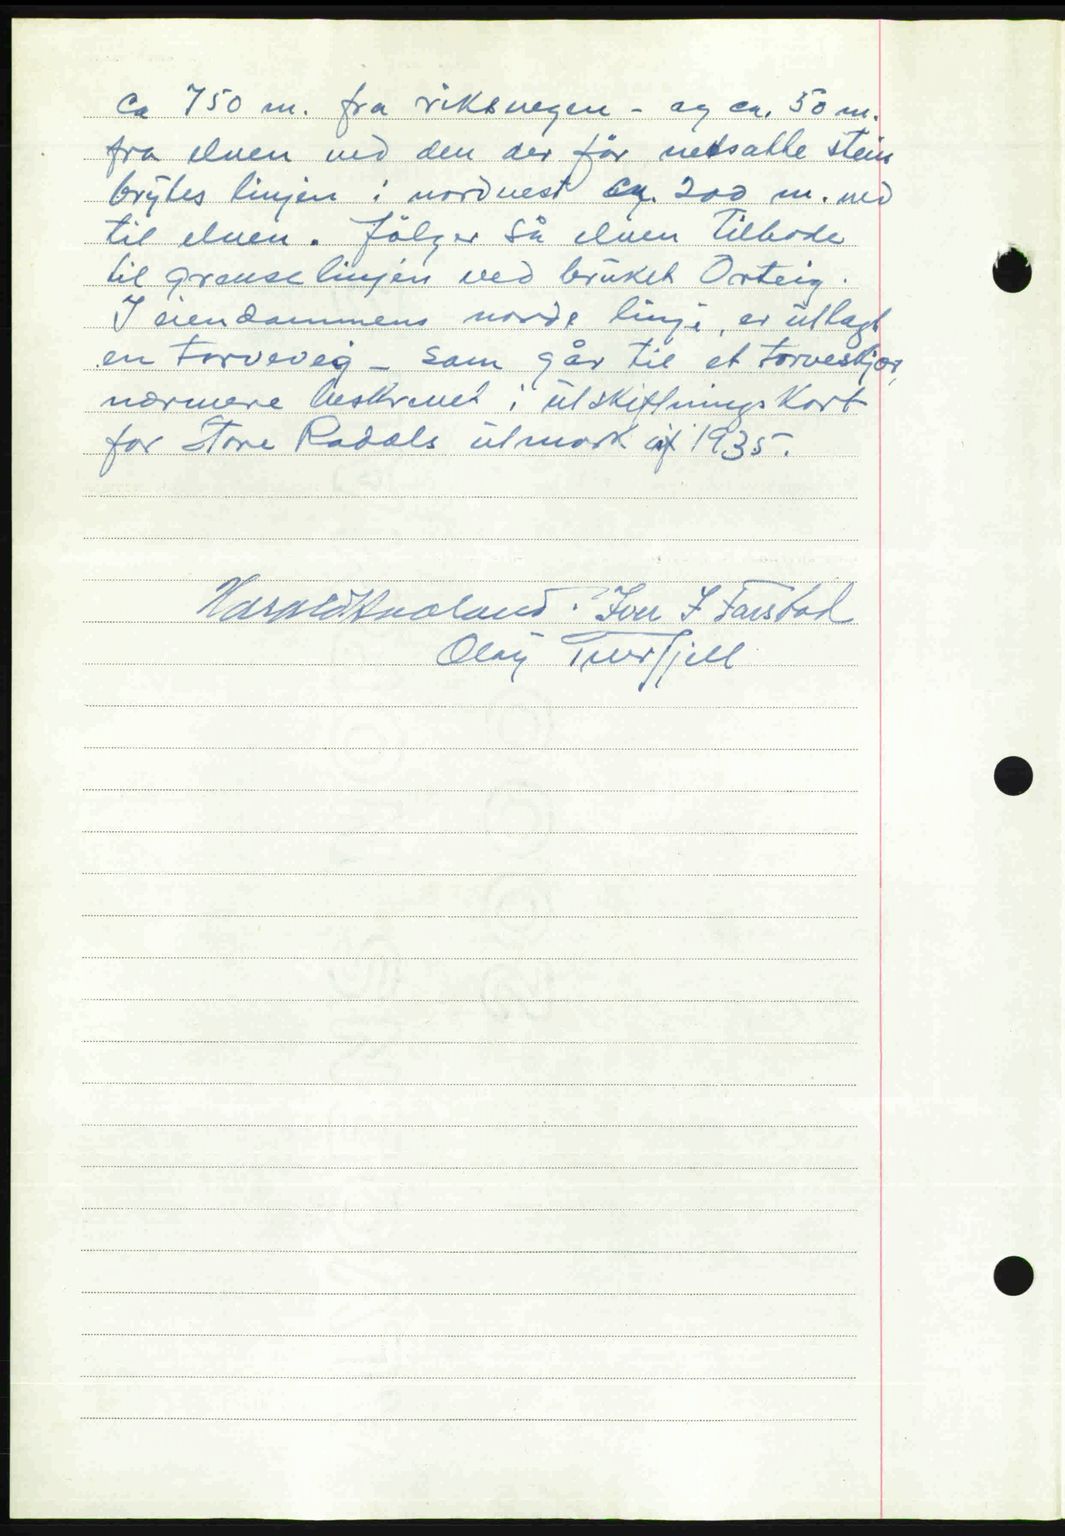 ca 750 m. fra riksvegen - og ca. 50 m.
fra elven ved den der før nedsatte stein
brytes linjen i nordvest ca. 200 m. ned
til elven. Følger så elven tilbake
til grenselinjen ved bruket Orteig.
I eiendommens nordre linje, er utlagt
en torvevei - som går til et torveskjær,
nærmere beskrevet i utskiftningskort
for Store Rødals utmark af 1935.
Harald Iver I Farstad
Olav Tverfjell